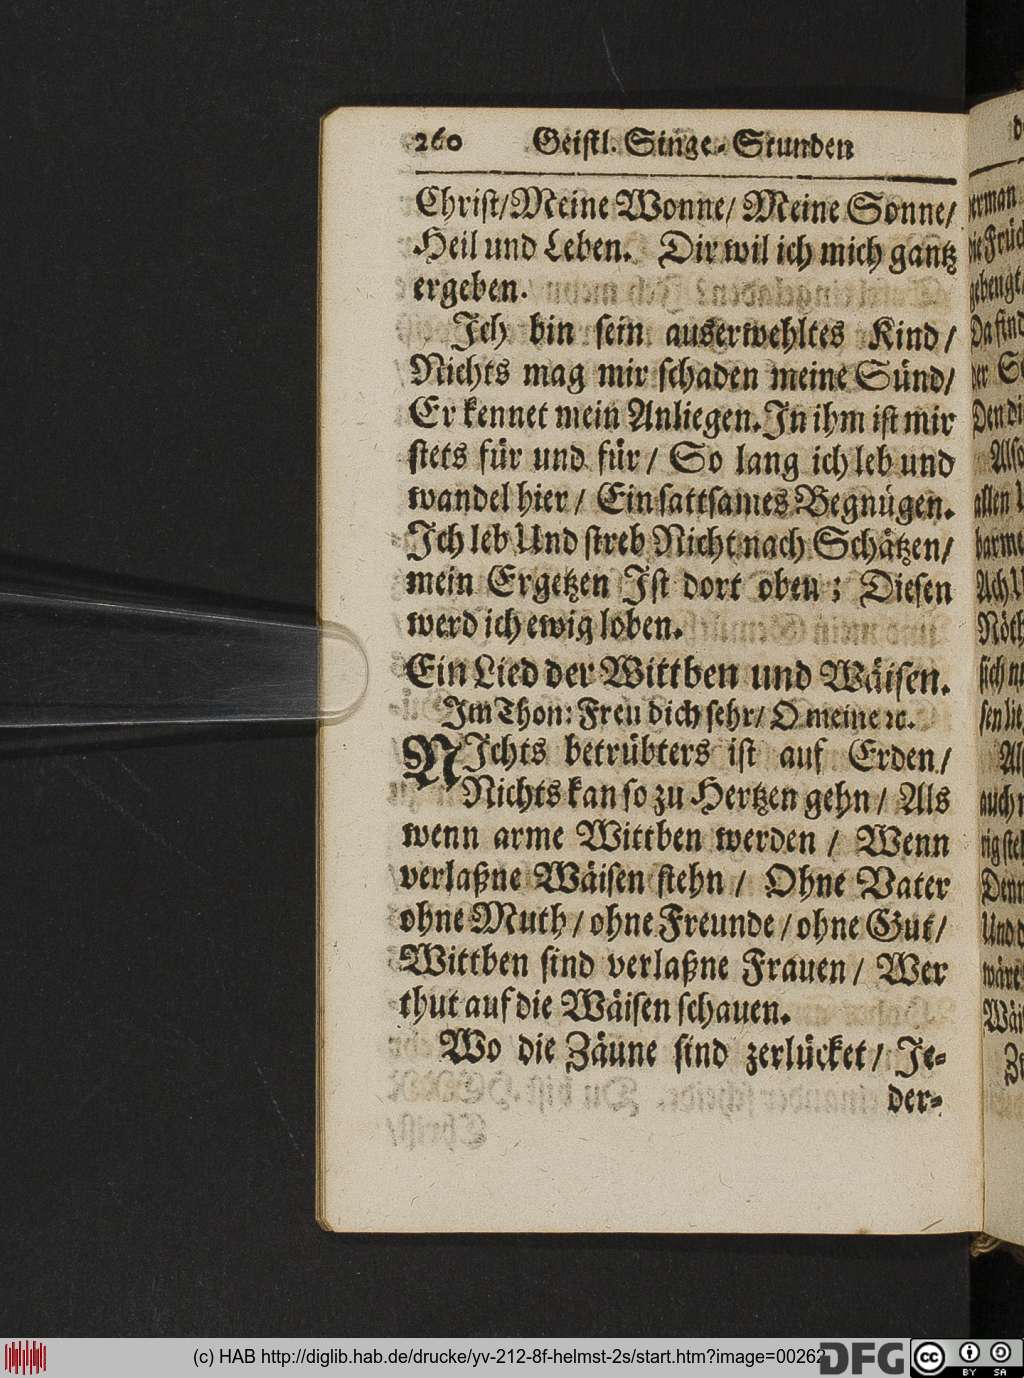 260 Geistl. Singe-Stunden
Christ/Meine Wonne/ Meine Sonne/
Heil und Leben. Dir wil ich mich gantz
ergeben.
Ich bin sein auserwehltes Kind/
Nichts mag mir schaden meine Sünd/
Er kennet mein Anliegen. In ihm ist mir
stets für und für/ So lang ich leb und
wandel hier/ Ein sattsames Begnügen.
Ich leb Und streb Nicht nach Schätzen/
mein Ergetzen Ist dort oben; Diesen
werd ich ewig loben.
Ein Lied der Wittben und Wäisen.
Im Thon: Freu dich sehr/ O meine ꝛc.
NIchts betrübters ist auf Erden/
Nichts kan so zu Hertzen gehn/ Als
wenn arme Wittben werden / Wenn
verlaßne Wäisen stehn/ Ohne Vater
ohne Muth/ohne Freunde/ohne Gut/
Wittben sind verlaßne Frauen/ Wer
thut auf die Wäisen schauen.
Wo die Zäune sind zerlücket/ Je-
der-
(c) HAB http://diglib.hab.de/drucke/yv-212-8f-helmst-2s/start.htm?image=00262
DFG
cc
BY SA